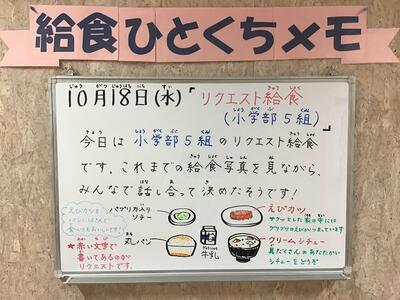 給食ひとくちメモ
10月18日(水)「リクエスト給食
(小学部5組)
今日は 小学部5組 のリクエスト給食
です。これまでの給食写真を見ながら、
みんなで話し合って決めたそうです!
えびカツを
パンにはさんで
食べてもおいしいです!
★赤い文字で
書いてあるのが
リクエストです。
パプリカ入り
ソテー
丸パン
牛乳
えびカツ
サクッとした衣の中には
プリプリのえびが入っています
クリームシチュー
具だくさんのあたたかい
シチューをどうぞ